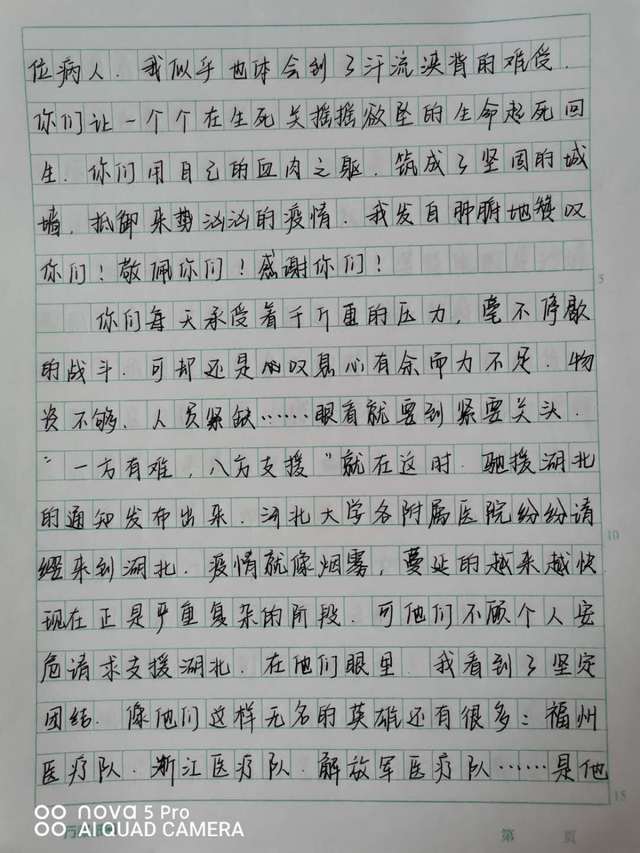 位病人.我似乎也体会到了汗流浃背的难受.
你们让一个个在生死关摇摇欲坠的生命起死回
生.你们用自己的血肉之躯.筑成了坚固的城
墙,抵御来势汹汹的疫情.我发自肺腑地赞叹
你们!敬佩你们!感谢你们!
你们每天承受着千斤重的压力,毫不停歇
的战斗.可却还是叹息心有余而力不足.物
资不够.人员紧缺……眼看就要到紧要关头.
"一方有难,八方支援"就在这时.驰援湖北
的通知发布出来.河北大学各附属医院纷纷请
缨来到湖北.疫情就像烟雾,蔓延的越来越快
现在正是严重复杂的阶段.可他们不顾个人安
危请求支援湖北.在他们眼里.我看到了坚定
团结.像他们这样无名的英雄还有很多:福州
医疗队.浙江医疗队.解放军医疗队……是他
5
10
15
nova 5 Pro
AI QUAD CAMERA
第 页